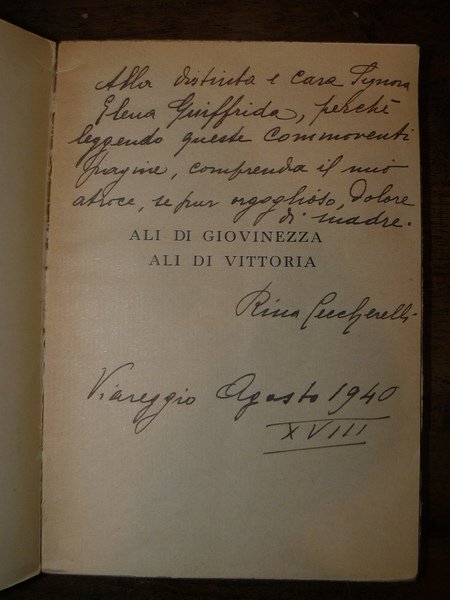 Alla distinta e cara Signora
Elena Giuffrida, perchè
leggendo queste commoventi
pagine, comprenda il mio
atroce, se pur orgoglioso, dolore
di madre.
ALI DI GIOVINEZZA
ALI DI VITTORIA
Rina Ceccherelli
Viareggio Agosto 1940
XVIII